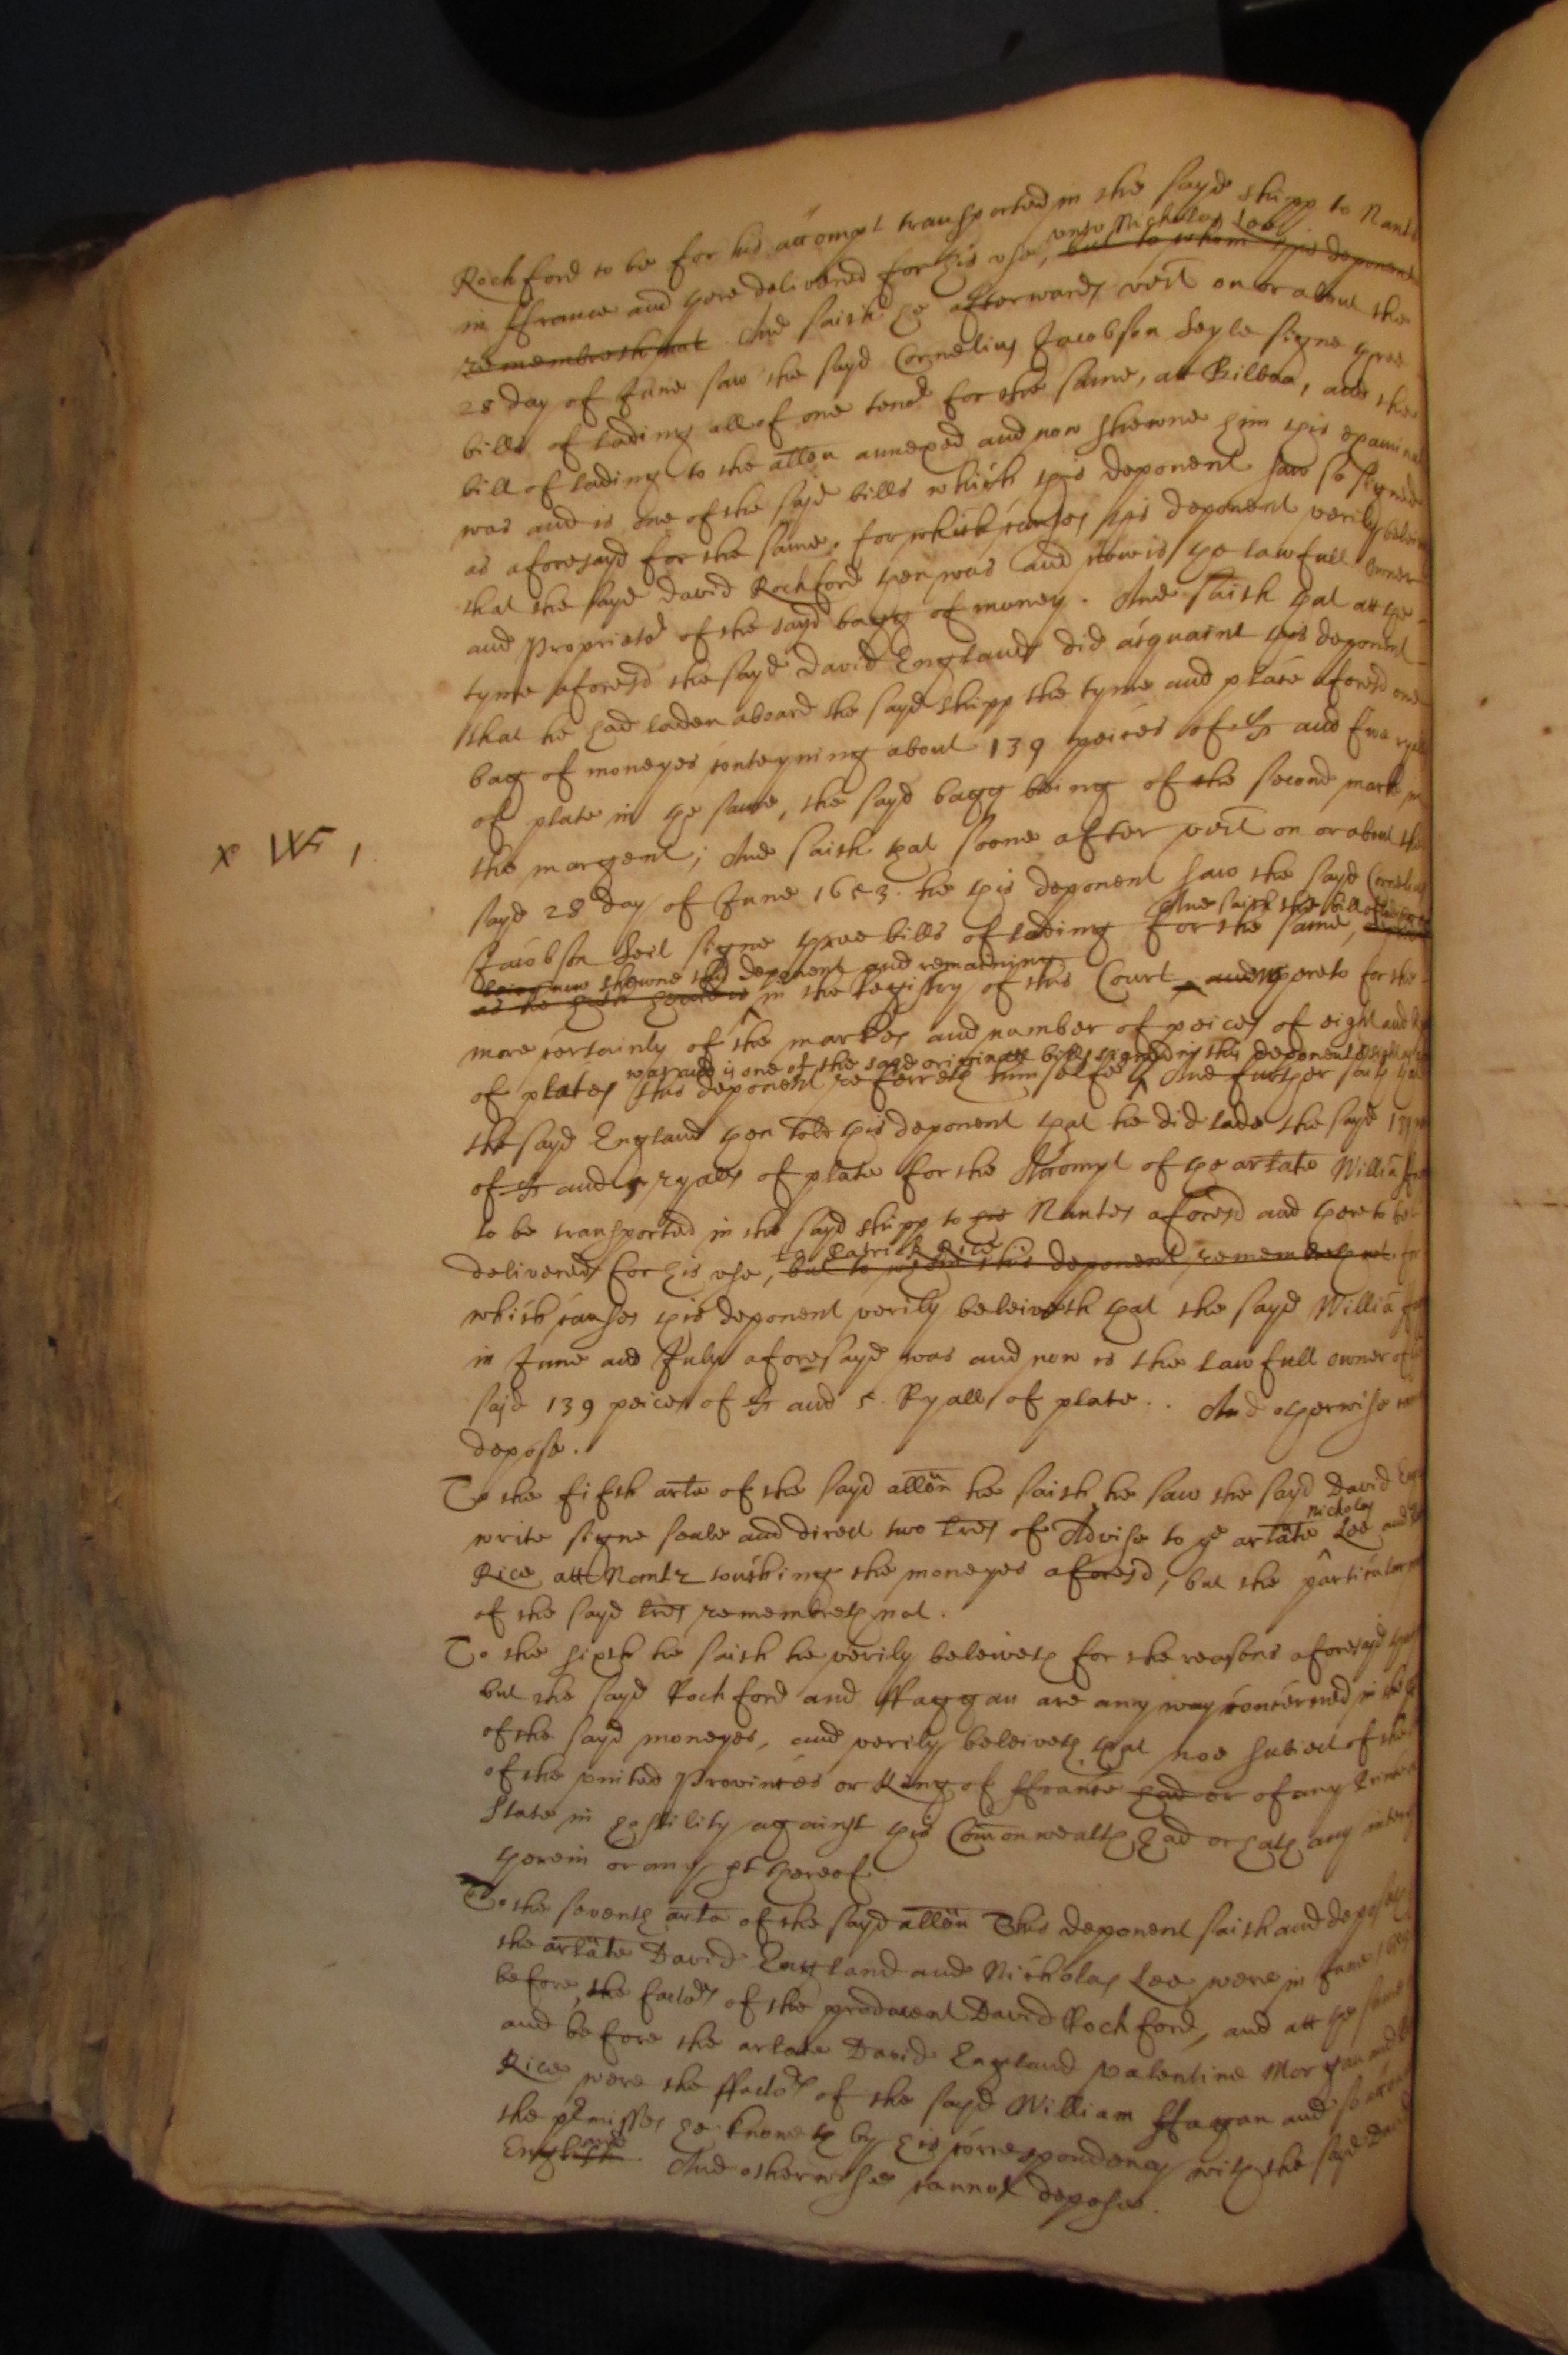 Rochford to be for his accompt transported in the sayd shipp to Nants
unto Nicholas Lee
in ffrance and there delivered for his use, but to whom this deponent
remembreth not And saith he afterwards vizt on or about the
28 day of June saw the sayd Cornelius Jacobson Seyle signe three
bills of lading all of one tenor for the same, att Bilboa, and the
bill of lading to the allon annexed and now shewne him this examinat
was and is one of the sayd bills which this deponent saw so signed
as aforesayd for the same, for which causes this deponent verily beleiveth
that the sayd David Rochford then was and now is the lawfull owner
and Proprietor of the sayd bagg of money. And saith that att the
tyme aforesd the sayd David England did acquaint this deponent
that he had laden aboard the sayd shipp the tyme and place aforesd one
bag of moneyes conteyning about 139 peices of 8 and five ryalls
of plate in the same, the sayd bagg being of the second marke in
x WF 1
the margent; And saith that soone after vizt on or about the
sayd 28 day of June 1653. he this deponent saw the sayd Cornelius
And saith the bill of lading
Jacobson Seil signe three bills of lading for the same,
being now shewne this deponent and remaining
as he hath heard is in the Registry of this Court and thereto for the
more certainly of the markes and number of peices of eight and
was and is one of the sayd originall bills signed in this deponents sight
of plates this deponent referreth himselfe And further saith that
the sayd England then told this deponent that he did lade the sayd 139
of 8 and 5 ryalls of plate for the Accompt of the arlate Willia
to be transported in the sayd shipp to his Nantes aforesd and there to be
to Patrick Rice
delivered for his use, but to whom this deponent remembreth not for
which causes this deponent verily beleiveth that the sayd Willia
in June and July aforesayd was and now is the lawfull owner of
sayd 139 peices of 8 and 5. Ryalls of plate. And otherwise
depose.
To the fifth arte of the sayd allon he saith he saw the sayd David
nicholas
write signe seale and direct two tres of Advise to ye arlate Lee and
Rice att Nants touching the moneyes aforesd, but the particular
of the sayd tres remembreth not.
To the sixth he saith he verily beleiveth for the reasons aforesayd
but the sayd Rochford and ffaggan are any way concerned in the
of the sayd moneyes, and verily beleiveth that noe subiect of the
of the united Provinces or King of ffrance had or of any
State in hostility against this Comonwealth had or hath any
therein or any pt thereof.
To the seventh arte of the sayd allon This deponent saith and deposeth
the arlate David England and Nicholas Lee were in June
before, the factors of the producent David Rochford, and att the same
and before the arlate David England valentine Morgan and
Rice were the ffactors of the sayd William ffagan and
the premisses he knoweth by his correspondency with the sayd
and
English. And otherwise cannot depose.